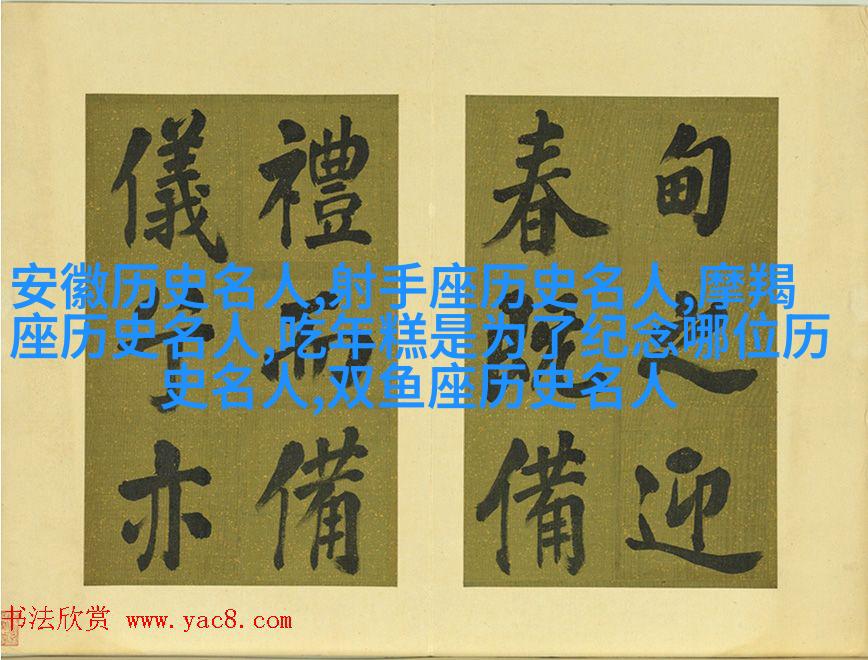 安徽历史名人,射手座历史名人,摩羯
座历史名人,吃年糕是为了纪念哪位历
史名人,双鱼座历史名人
甸之迎
春備
禮而備
儀亦
书法欣赏 www.yac8.com